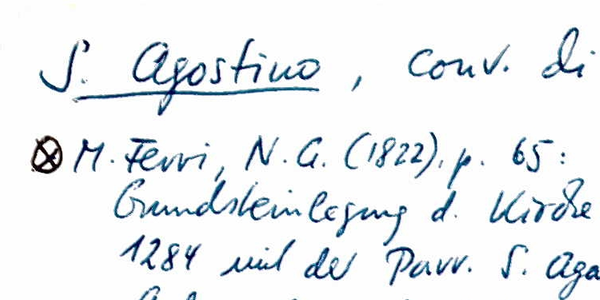 S. Agostino, conv. di
M. Ferri, N. G. (1822), p. 65:
Grundsteinlegung d. Kirche
1284 mit der Parr. S. Aga